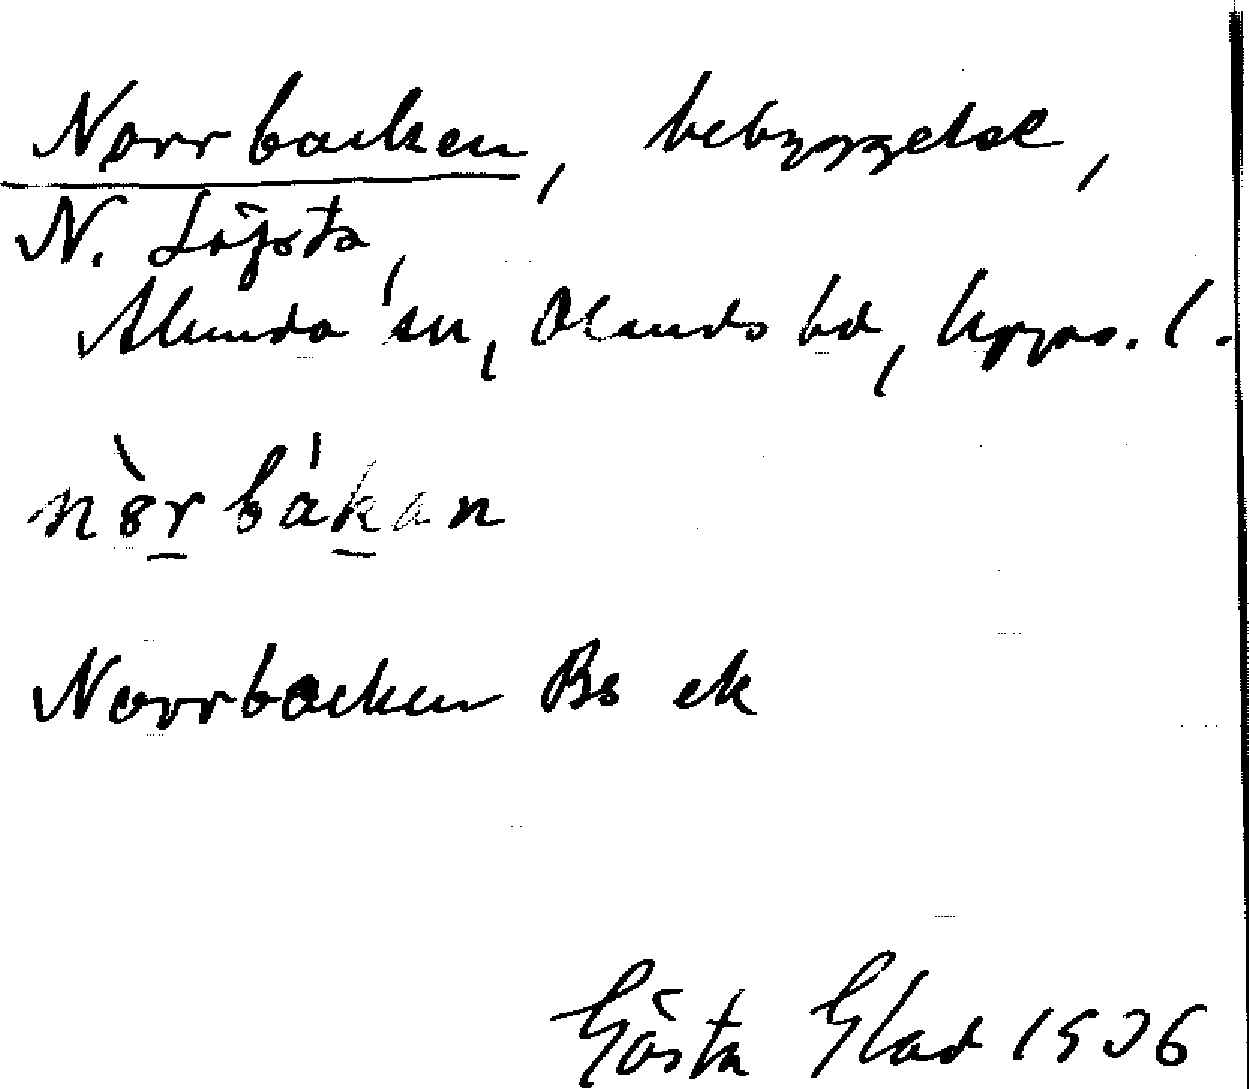 Norrbacken, bebyggelse,
N. Löfsta,
Alunda sn, Olands hd, Upps. l.
nòrbákan
Norrbacken Bs ek
Gösta Glad 1936